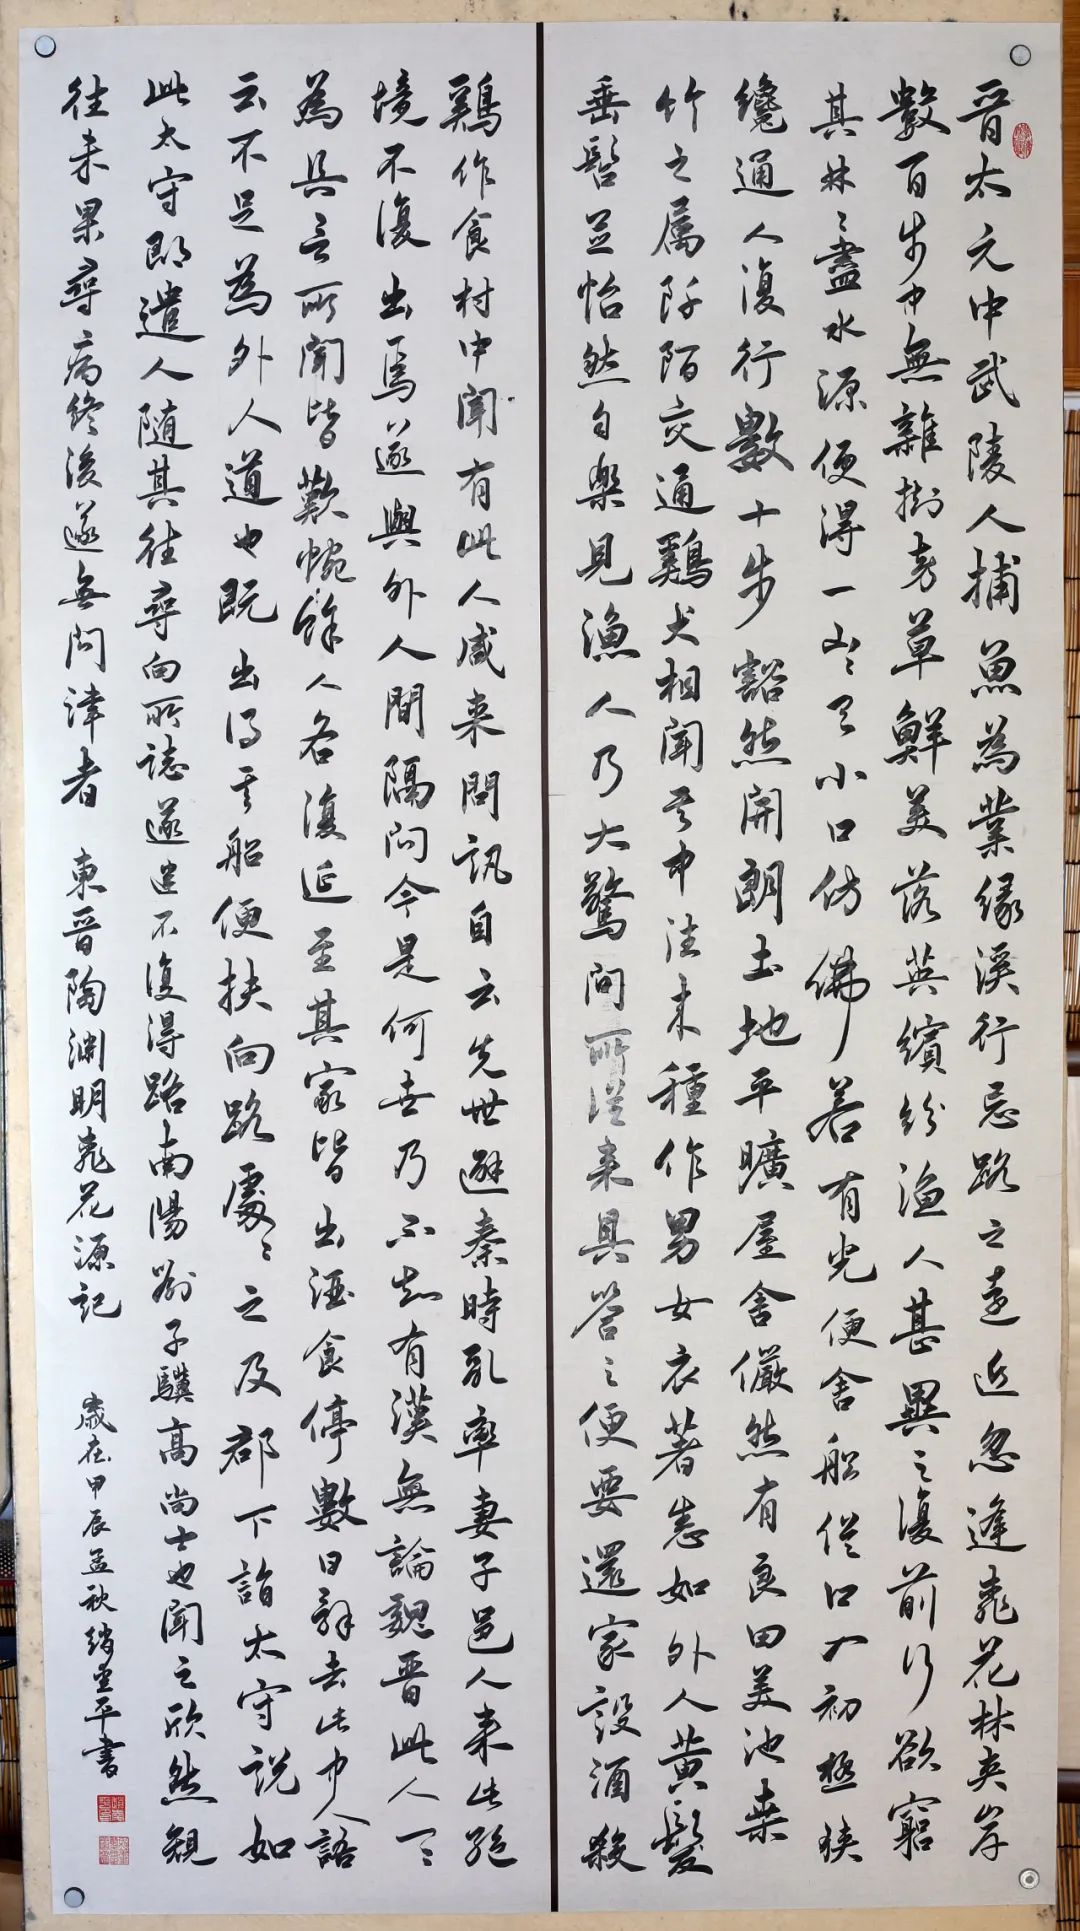 晋太元中武陵人捕魚為業緣溪行忘路之遠近忽逢桃花林夾岸
數百步中無雜樹芳草鮮美落英繽紛漁人甚異之復前行欲窮
其林々盡水源便得一山々有小口仿佛若有光便舍船從口入初極狹
纔通人復行數十步豁然開朗土地平曠屋舍儼然有良田美池桑
竹之屬阡陌交通鷄犬相聞其中往來種作男女衣著悉如外人黃髮
垂髫並怡然自樂見漁人乃大驚問所從來具答之便要還家設酒殺
鷄作食村中聞有此人咸來問訊自云先世避秦時亂率妻子邑人來此絕
境不復出焉遂與外人間隔問今是何世乃不知有漢無論魏晋此人一々
為具言所聞皆歎惋餘人各復延至其家皆出酒食停數日辭去此中人語
云不足為外人道也既出得其船便扶向路處々之及郡下詣太守說如
此太守即遣人隨其往尋向所誌遂迷不復得路南陽劉子驥高尚士也聞之欣然規
往未果尋病終後遂無問津者 東晋陶淵明桃花源記 歲在甲辰孟秋 平書